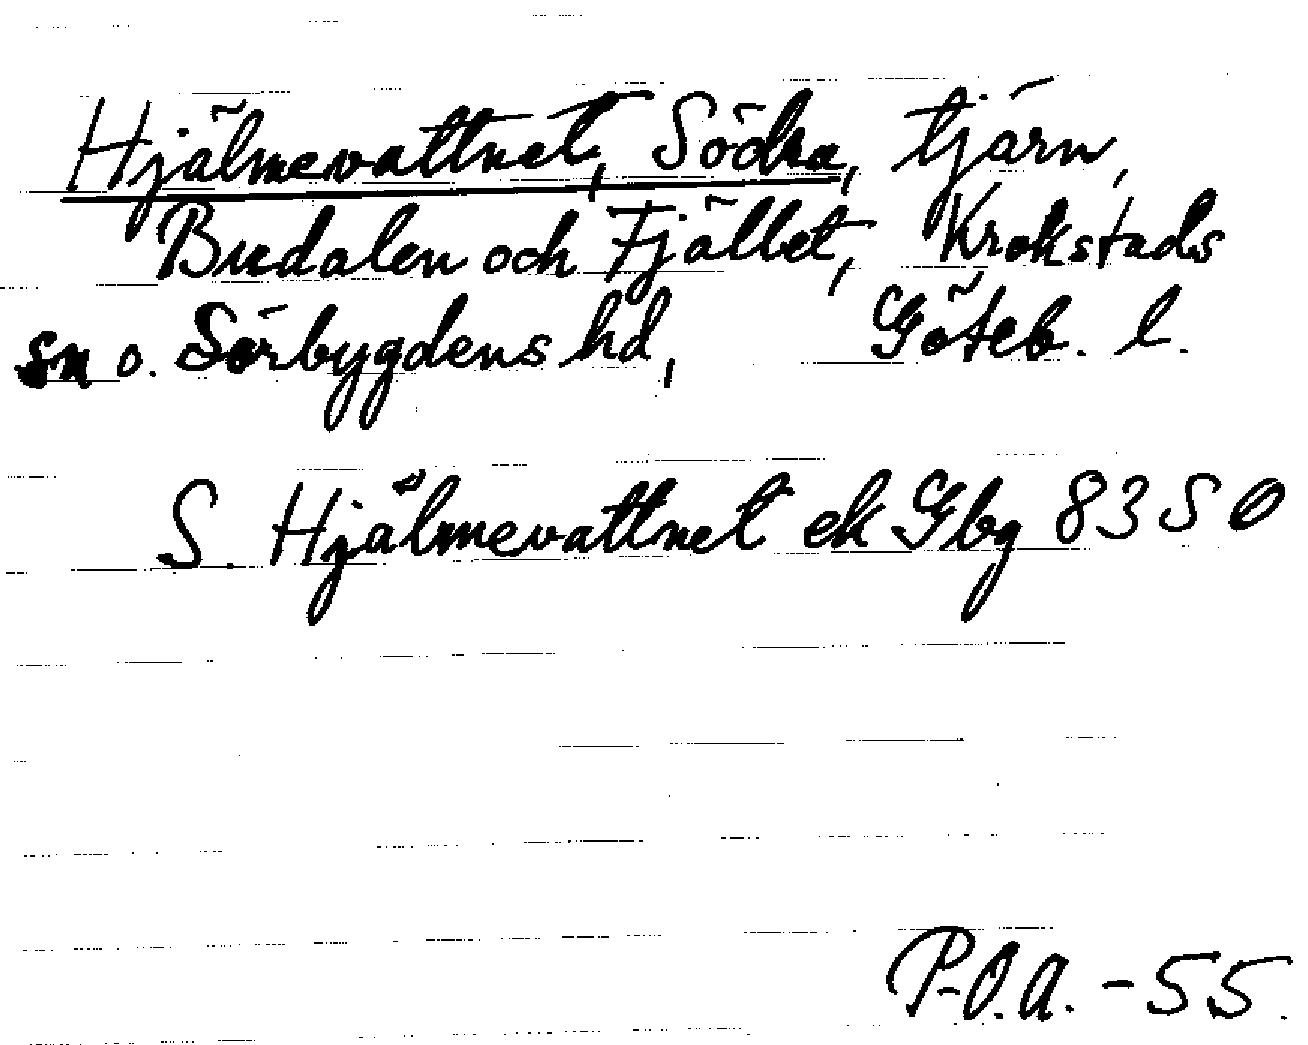 Hjälmevattnet, Södra, tjärn,
Budalen och Fjället, Krokstads
sn o. Sörbygdens hd, Göteb. l.
S. Hjälmevattnet ek Gbg 8350
P-O.A. -55.